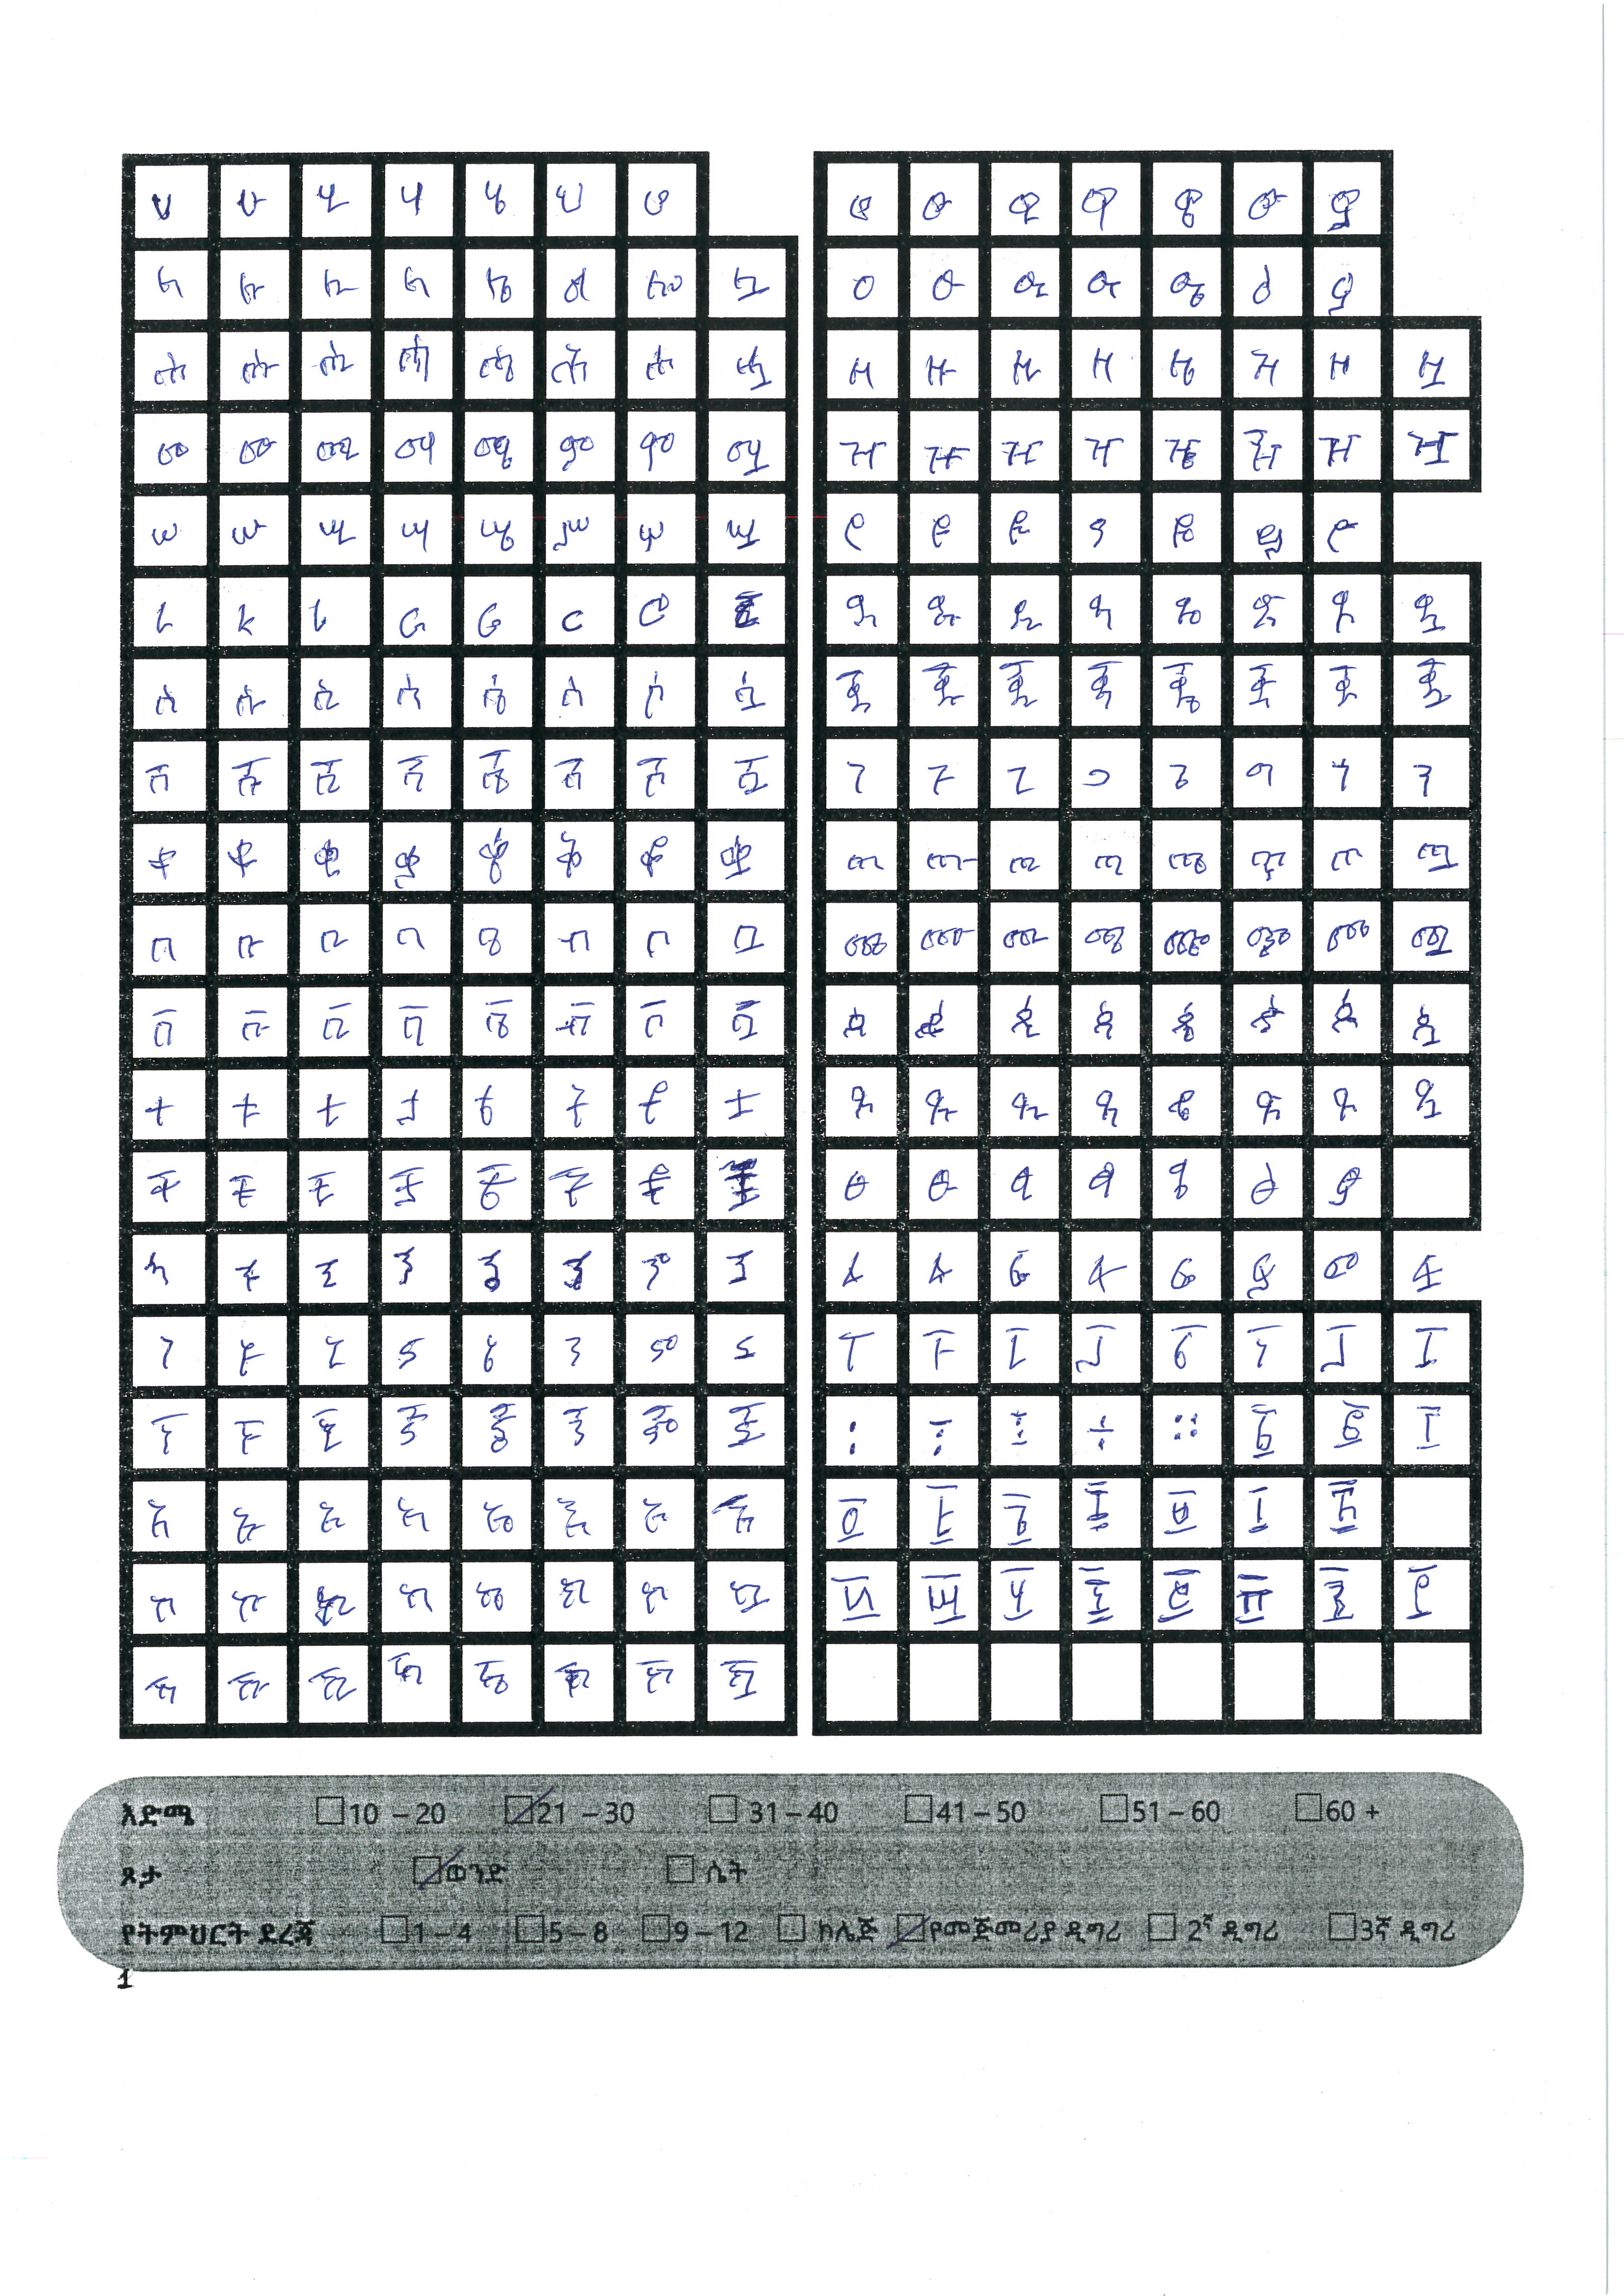 ሀ ሁ ሂ ሃ ሄ ህ ሆ
ለ ሉ ሊ ላ ሌ ል ሎ ሏ
ሐ ሑ ሒ ሓ ሔ ሕ ሖ ሗ
መ ሙ ሚ ማ ሜ ም ሞ ሟ
ሠ ሡ ሢ ሣ ሤ ሥ ሦ ሧ
ረ ሩ ሪ ራ ሬ ር ሮ ሯ
ሰ ሱ ሲ ሳ ሴ ስ ሶ ሷ
ሸ ሹ ሺ ሻ ሼ ሽ ሾ ሿ
ቀ ቁ ቂ ቃ ቄ ቅ ቆ ቋ
በ ቡ ቢ ባ ቤ ብ ቦ ቧ
ቨ ቩ ቪ ቫ ቬ ቭ ቮ ቯ
ተ ቱ ቲ ታ ቴ ት ቶ ቷ
ቸ ቹ ቺ ቻ ቼ ች ቾ ቿ
ኀ ኁ ኂ ኃ ኄ ኅ ኆ ኋ
ነ ኑ ኒ ና ኔ ን ኖ ኗ
ኘ ኙ ኚ ኛ ኜ ኝ ኞ ኟ
አ ኡ ኢ ኣ ኤ እ ኦ ኧ
ከ ኩ ኪ ካ ኬ ክ ኮ ኳ
ኸ ኹ ኺ ኻ ኼ ኽ ኾ ዃ
ወ ዉ ዊ ዋ ዌ ው ዎ
ዐ ዑ ዒ ዓ ዔ ዕ ዖ
ዘ ዙ ዚ ዛ ዜ ዝ ዞ ዟ
ዠ ዡ ዢ ዣ ዤ ዥ ዦ ዧ
የ ዩ ዪ ያ ዬ ይ ዮ
ደ ዱ ዲ ዳ ዴ ድ ዶ ዷ
ጀ ጁ ጂ ጃ ጄ ጅ ጆ ጇ
ገ ጉ ጊ ጋ ጌ ግ ጎ ጓ
ጠ ጡ ጢ ጣ ጤ ጥ ጦ ጧ
ጨ ጩ ጪ ጫ ጬ ጭ ጮ ጯ
ጰ ጱ ጲ ጳ ጴ ጵ ጶ ጷ
ጸ ጹ ጺ ጻ ጼ ጽ ጾ ጿ
ፀ ፁ ፂ ፃ ፄ ፅ ፆ
ፈ ፉ ፊ ፋ ፌ ፍ ፎ ፏ
ፐ ፑ ፒ ፓ ፔ ፕ ፖ ፗ
፡ ፣ ፤ ÷ ። ፩ ፪ ፫
፬ ፭ ፮ ፯ ፰ ፱ ፲
፳ ፴ ፵ ፶ ፷ ፸ ፹ ፺
እድሜ 10 – 20 21 – 30 31 – 40 41 – 50 51 – 60 60 +
ጾታ ወንድ ሴት
የትምህርት ደረጃ 1 – 4 5 – 8 9 – 12 ኮሌጅ የመጀመሪያ ዲግሪ 2ኛ ዲግሪ 3ኛ ዲግሪ
1